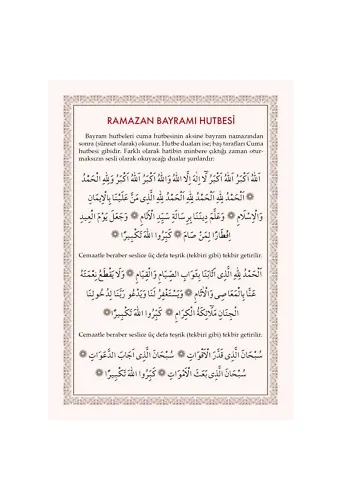 RAMAZAN BAYRAMI HUTBESİ
Bayram hutbeleri cuma hutbesinin aksine bayram namazından
sonra (sünnet olarak) okunur. Hutbe duaları ise; baş tarafları Cuma
hutbesi gibidir. Farklı olarak hatibin minbere çıktığı zaman otur-
maksızın sesli olarak okuyacağı dualar şunlardır:
اَللّٰهُ اَكْبَرُ اَللّٰهُ اَكْبَرُ لَٓا اِلٰهَ اِلَّا اللّٰهُ وَاللّٰهُ اَكْبَرُ اَللّٰهُ اَكْبَرُ وَلِلّٰهِ الْحَمْدُ
اَلْحَمْدُ لِلّٰهِ اَلْحَمْدُ لِلّٰهِ اَلْحَمْدُ لِلّٰهِ الَّذِى مَنَّ عَلَيْنَا بِالْاِيمَانِ
وَالْاِسْلَامِ ۞ وَعَلَّمَ دِينَنَا بِرِسَالَةِ سَيِّدِ الْاَنَامِ ۞ وَجَعَلَ يَوْمَ الْعِيدِ
اِفْطَارًا لِمَنْ صَامَ ۞ كَبِّرُوا اللّٰهَ تَكْبِيرًا ۞
Cemaatle beraber seslice üç defa teşrik (tekbiri gibi) tekbir getirilir.
اَلْحَمْدُ لِلّٰهِ الَّذِى اَثَابَنَا بِثَوَابِ الصِّيَامِ وَالْقِيَامِ ۞ وَلَا يَقْطَعُ نِعْمَتَهُ
عَنَّا بِالْمَعَاصِى وَالْاٰثَامِ ۞ وَيَسْتَغْفِرُ لَنَا وَيَدْعُو رَبَّنَا لِدُخُولِنَا
الْجِنَانَ مَلَٓائِكَةُ الْكِرَامِ ۞ كَبِّرُوا اللّٰهَ تَكْبِيرًا ۞
Cemaatle beraber seslice üç defa teşrik (tekbiri gibi) tekbir getirilir.
سُبْحَانَ الَّذِى قَدَّرَ الْاَقْوَاتِ ۞ سُبْحَانَ الَّذِى اَجَابَ الدَّعَوَاتِ
۞ سُبْحَانَ الَّذِى بَعَثَ الْاَمْوَاتِ ۞ كَبِّرُوا اللّٰهَ تَكْبِيرًا ۞